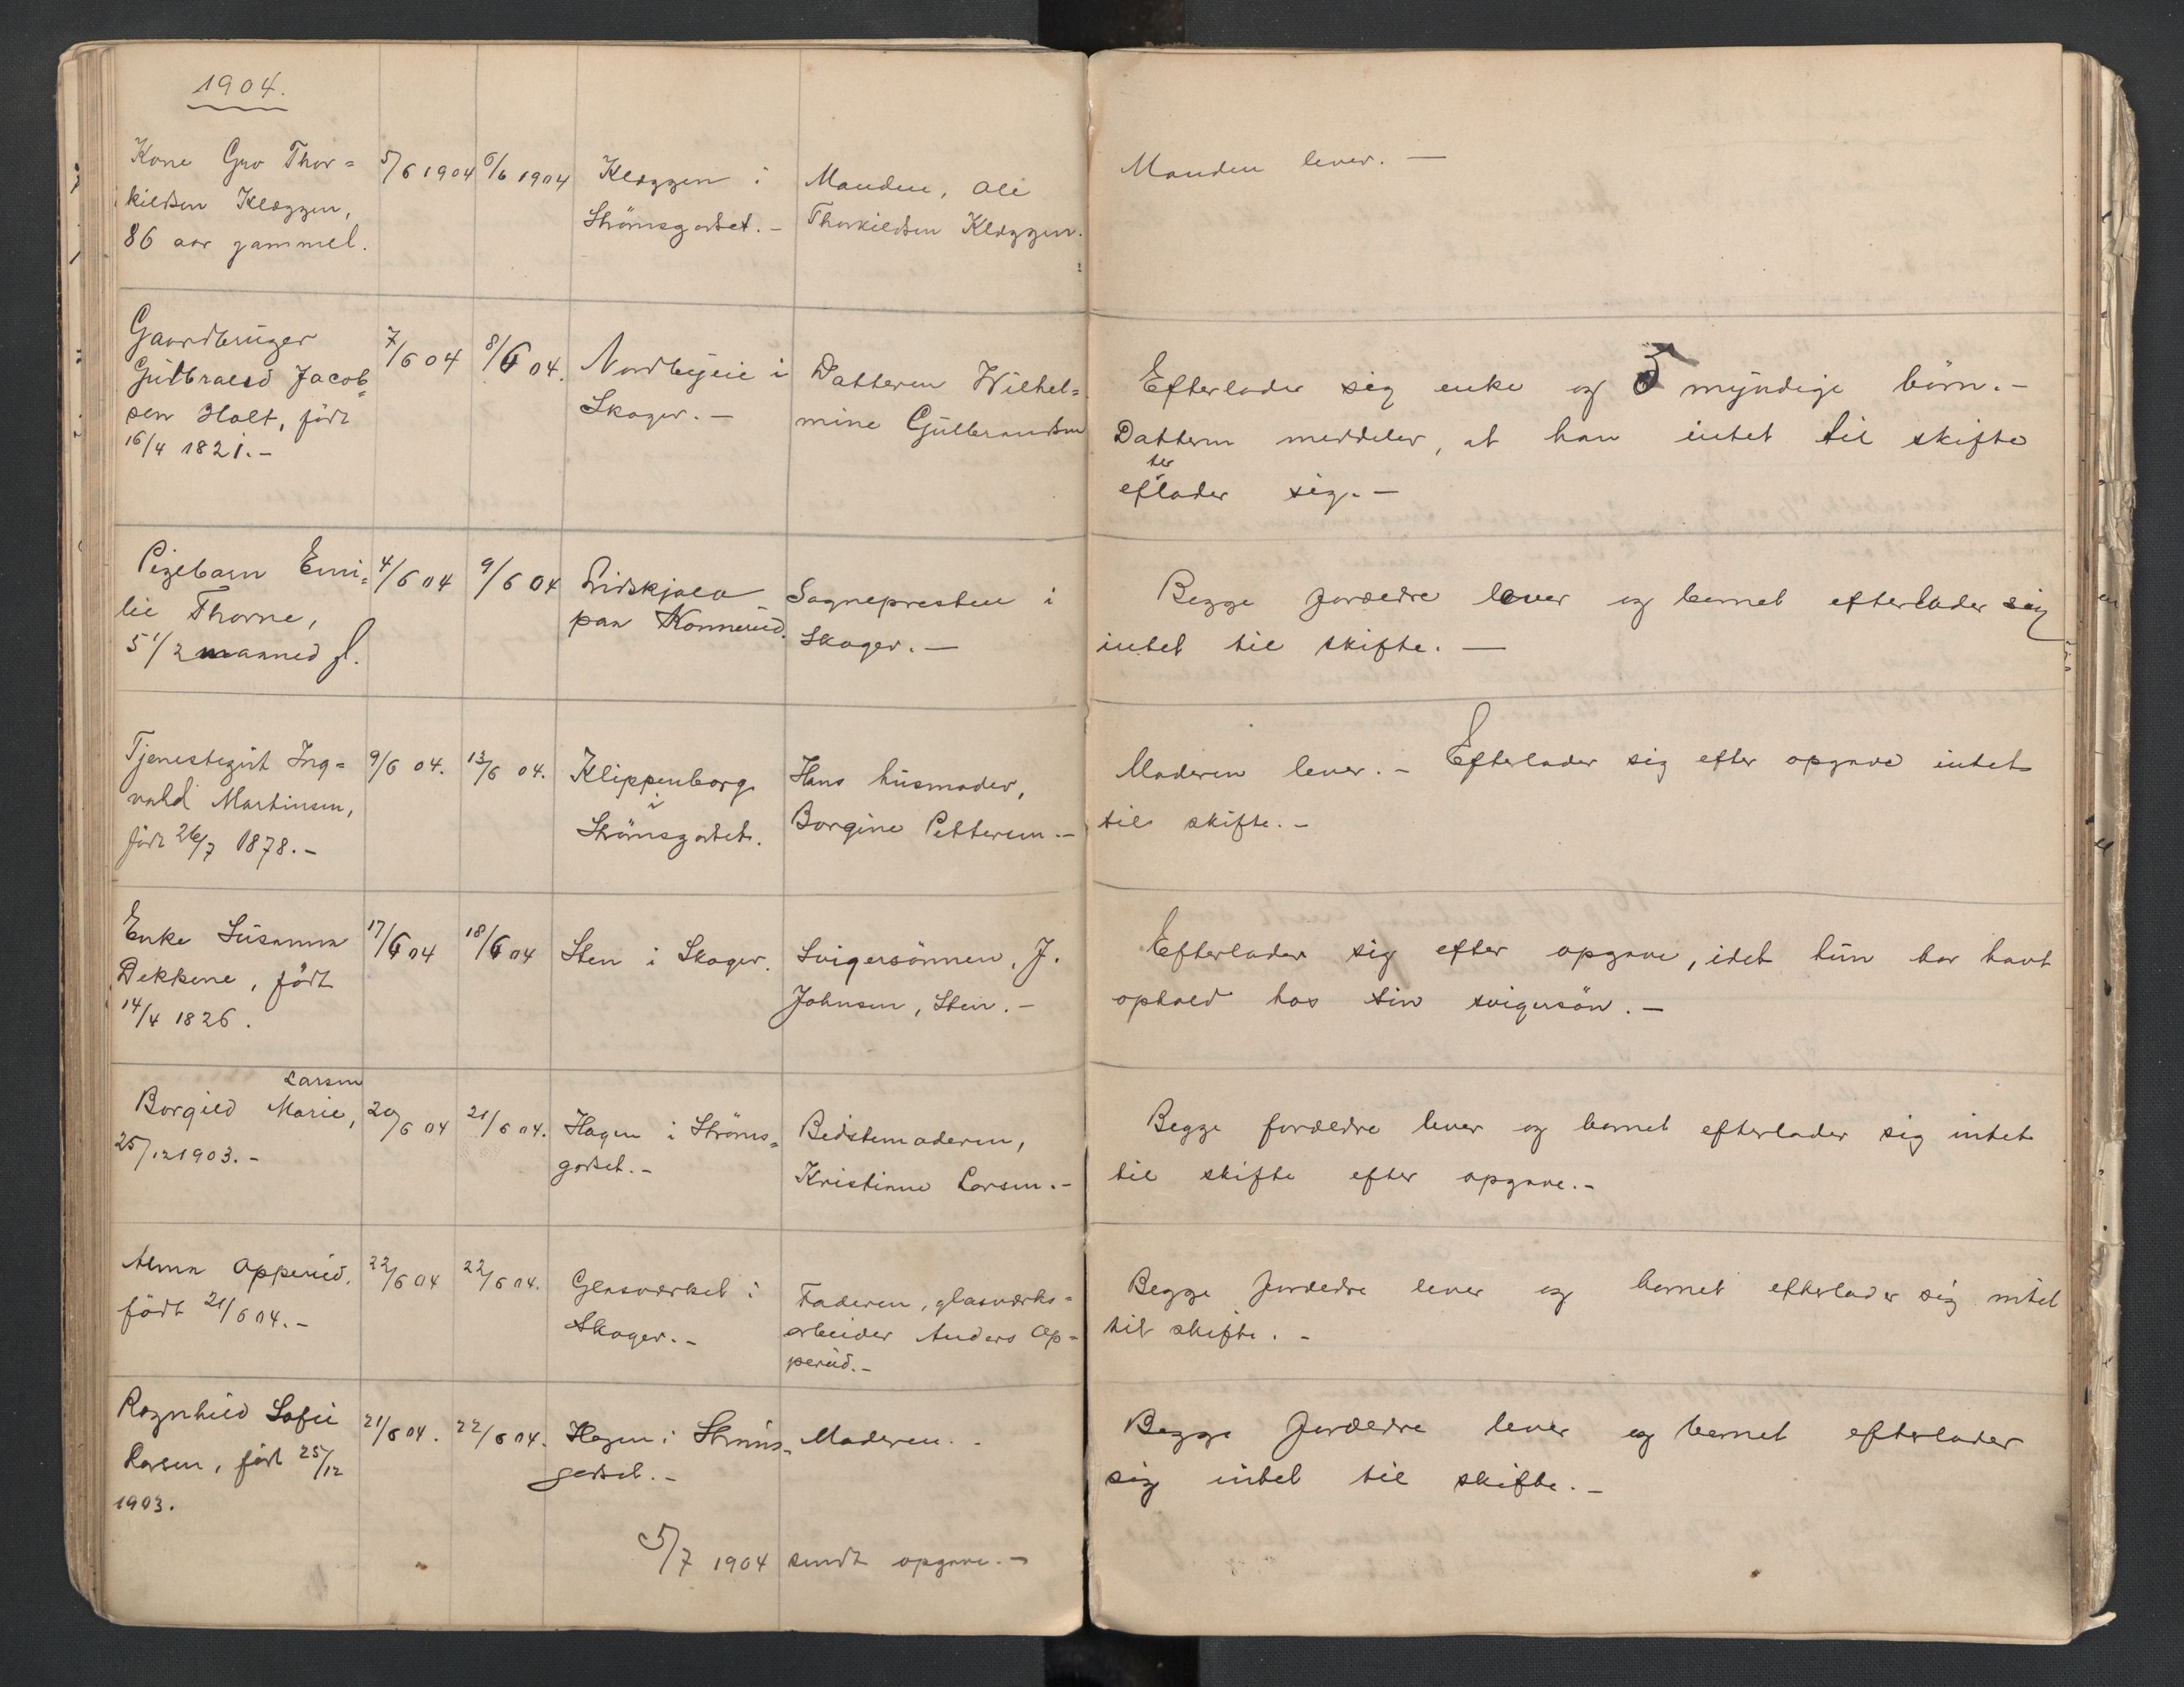 1904.
Kone Gro Thor=
kildsen Kleggen,
86 aar gammel.
5/6 1904
6/6 1904
Kleggen i
Strömsgodset. -
Manden, Ole
Thorkildsen Kleggen.
Manden lever. -
Gaardbruger
Gulbrand Jacob=
sen Holt, födt
16/4 1821. -
7/6 04
8/6 04.
Nordbyeie i
Skoger. -
Datteren Wilhel=
mine Gulbrandsen
Efterlader sig enke og 5 myndige börn. -
Datteren meddeler, at han intet til skifte
ter
eflader sig. -
Pigebarn Emi=
lie Thorne,
5 1/2 maaned gl.
4/6 04
9/6 04
Lidskjalv
paa Konnerud.
Sognepresten i
Skoger. -
Begge forældre lever og barnet efterlader sig
intet til skifte. -
Tjenestegut Ing=
vald Martinsen,
födt 26/7 1878. -
9/6 04.
13/6 04.
Klippenborg
i
Strömsgodset.
Hans husmoder,
Borgine Pettersen. -
Moderen lever. - Efterlader sig efter opgave intet
til skifte. -
Enke Susanna
Dekkene, födt
14/4 1826.
17/6 04
18/6 04
Sten i Skoger.
Svigersönnen, J.
Johnsen, Sten. -
Efterlader sig efter opgave, idet hun har havt
ophold hos sin svigersön. -
Larsen
Borgild Marie,
25/12 1903. -
20/6 04
21/6 04.
Hagen i Ströms=
godset. -
Bedstemoderen,
Kristinne Larsen. -
Begge forældre lever og barnet efterlader sig intet
til skifte efter opgave. -
Alma Opperud,
födt 21/6 04. -
22/6 04
22/6 04.
Glasværket i
Skoger. -
Faderen, glasværks=
arbeider Anders Op=
perud. -
Begge forældre lever og barnet efterlader sig intet
til skifte. -
Ragnhild Sofie
Larsen, födt 25/12
1903.
21/6 04.
22/6 04.
Hagen i Ströms=
godset. -
Moderen. -
Begge forældre lever og barnet efterlader
sig intet til skifte. -
5/7 1904 sendt opgave. -